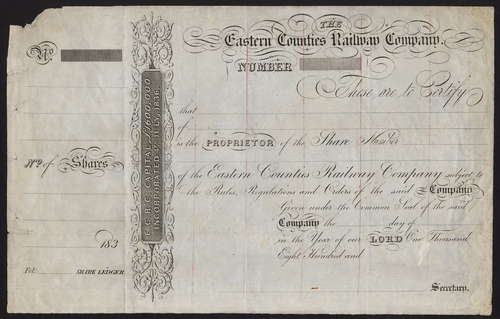 THE
Eastern Counties Railway Company.
No.
NUMBER
These are to Certify
that
of
is the PROPRIETOR of the Share Number
No. of Shares
of the Eastern Counties Railway Company subject to
the Rules, Regulations and Orders of the said Company
Given under the Common Seal of the said
Company the day of
in the Year of our LORD One Thousand
Eight Hundred and
183
Fol: SHARE LEDGER.
Secretary.
E.C.R.C. CAPITAL £1,600,000
INCORPORATED 4TH JULY, 1836.